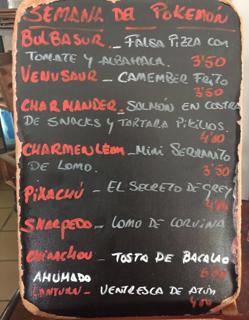 SEMANA DEL POKEMÓN
BULBASUR _ FALSA PIZZA CON
TOMATE Y ALBAHACA. 3'50
VENUSAUR - CAMEMBER FRITO
3'50
CHARMANDER - SALMÓN EN COSTRA
DE SNACKS Y TARTARA PIKILLOS
4'00
CHARMENLEON - MINI SERRANITO
DE LOMO. 3'50
PIKACHÚ - EL SECRETO DE GREY
SHARPEDO - LOMO DE CORVINA
CHINACHOU - TOSTA DE BACALAO
AHUMADO
LANTURN - VENTRESCA DE ATÚN
4'00